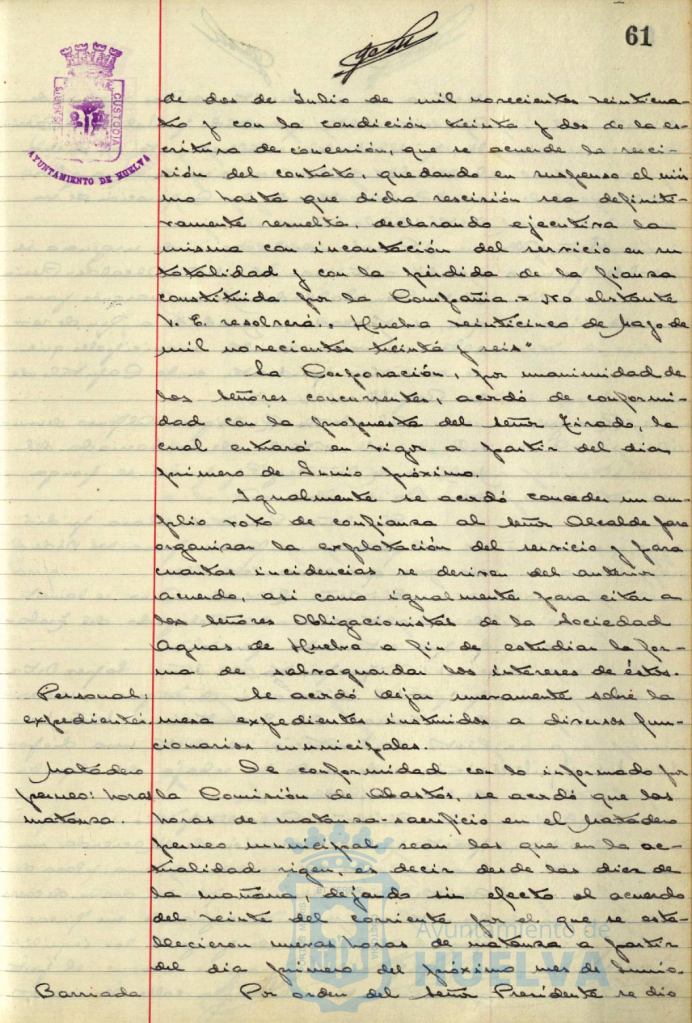 61
CUSTODIA
AYUNTAMIENTO DE HUELVA
de dos de Julio de mil novecientos veinticua-
tro y con la condición treinta y dos de la es-
critura de concesión, que se acuerde la resci-
sión del contrato, quedando en suspenso el mis-
mo hasta que dicha rescisión sea definiti-
vamente resuelta, declarando ejecutiva la
misma con incautación del servicio en su
totalidad y con la pérdida de la fianza
constituida por la Compañia.= No obstante
V. E. resolverá., Huelva veinticinco de Mayo de
mil novecientos treinta y seis"
La Corporación, por unanimidad de
los señores concurrentes, acordó de confor-
midad con la propuesta del señor Tirado, la
cual entrará en vigor a partir del dia
primero de Junio próximo.
Igualmente se acordó conceder un am-
plio voto de confianza al señor Alcalde para
organizar la explotación del servicio y para
cuantas incidencias se deriven del anterior
acuerdo, asi como igualmente para citar a
los señores Obligacionistas de la Sociedad
Aguas de Huelva a fin de estudiar la for-
ma de salvaguardar los intereses de éstos.
Personal: Se acordó dejar nuevamente sobre la
expedientes. mesa expedientes instruidos a diversos fun-
cionarios municipales.
Matadero De conformidad con lo informado por
porcino: horas la Comisión de Abastos, se acordó que las
matanza. horas de matanza-sacrificio en el Matadero
porcino municipal sean las que en la ac-
tualidad rigen, es decir desde las diez de
la mañana, dejando sin efecto el acuerdo
del veinte del corriente por el que se esta-
blecieron nuevas horas de matanza a partir
del dia primero del próximo mes de Junio.
Barriada Por orden del señor Presidente se dio
Ayuntamiento de
HUELVA